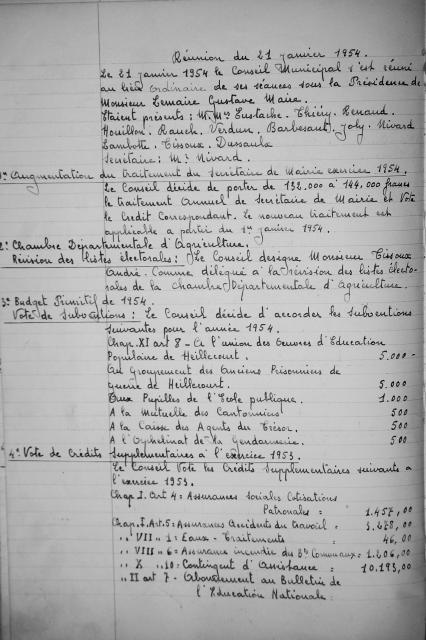 Réunion du 21 janvier 1954.
Le 21 janvier 1954 le Conseil Municipal s'est réuni
au lieu ordinaire de ses séances sous la Présidence de
Monsieur Lemaire Gustave Maire.
Etaient présents : M. Mrs Eustache. Thiéry. Renaud.
Houillon. Rauch. Verdun. Barbesant. Joly. Nivard
Lambotte. Tissoux. Dussaulx
Secrétaire : Mr Nivard.
1° Augmentation du traitement du Secrétaire de Mairie exercice 1954.
Le Conseil décide de porter de 132.000 à 144.000 francs
le traitement Annuel de Secrétaire de Mairie et Vote
le Crédit Correspondant. Le nouveau traitement est
applicable à partir du 1er janvier 1954.
2° Chambre Départementale d'Agriculture.
Révision des listes électorales : Le Conseil désigne Monsieur Tissoux
André. Comme délégué à la révision des listes électo-
rales de la Chambre Départementale d'Agriculture.
3° Budget Primitif de 1954.
Vote de Subventions : Le Conseil décide d'accorder les subventions
suivantes pour l'année 1954.
Chap. XI art 8 - A l'union des Oeuvres d'Education
Populaire de Heillecourt. 5.000 -
Au Groupement des Anciens Prisonniers de
guerre de Heillecourt. 5.000
Aux Pupilles de l'Ecole publique. 1.000
A la Mutuelle des Cantonniers 500
A la Caisse des Agents du Trésor. 500
A l'Orphelinat de la Gendarmerie. 500
4° Vote de Crédits Supplémentaires à l'exercice 1953.
Le Conseil Vote les Crédits Supplémentaires suivants à
l'exercice 1953.
Chap I. Art 4 = Assurances sociales Cotisations
Patronales = 1.457,00
Chap. I. Art. 5 = Assurances Accidents du travail = 3.278,00
" VIII " 1 = Eaux - Traitements = 46,00
" VIII " 6 = Assurance incendie des Bts Communaux = 1.206,00
" X " 10 = Contingent d'Assistance = 10.193,00
" II art 7 - Abonnement au Bulletin de
l'Education Nationale.